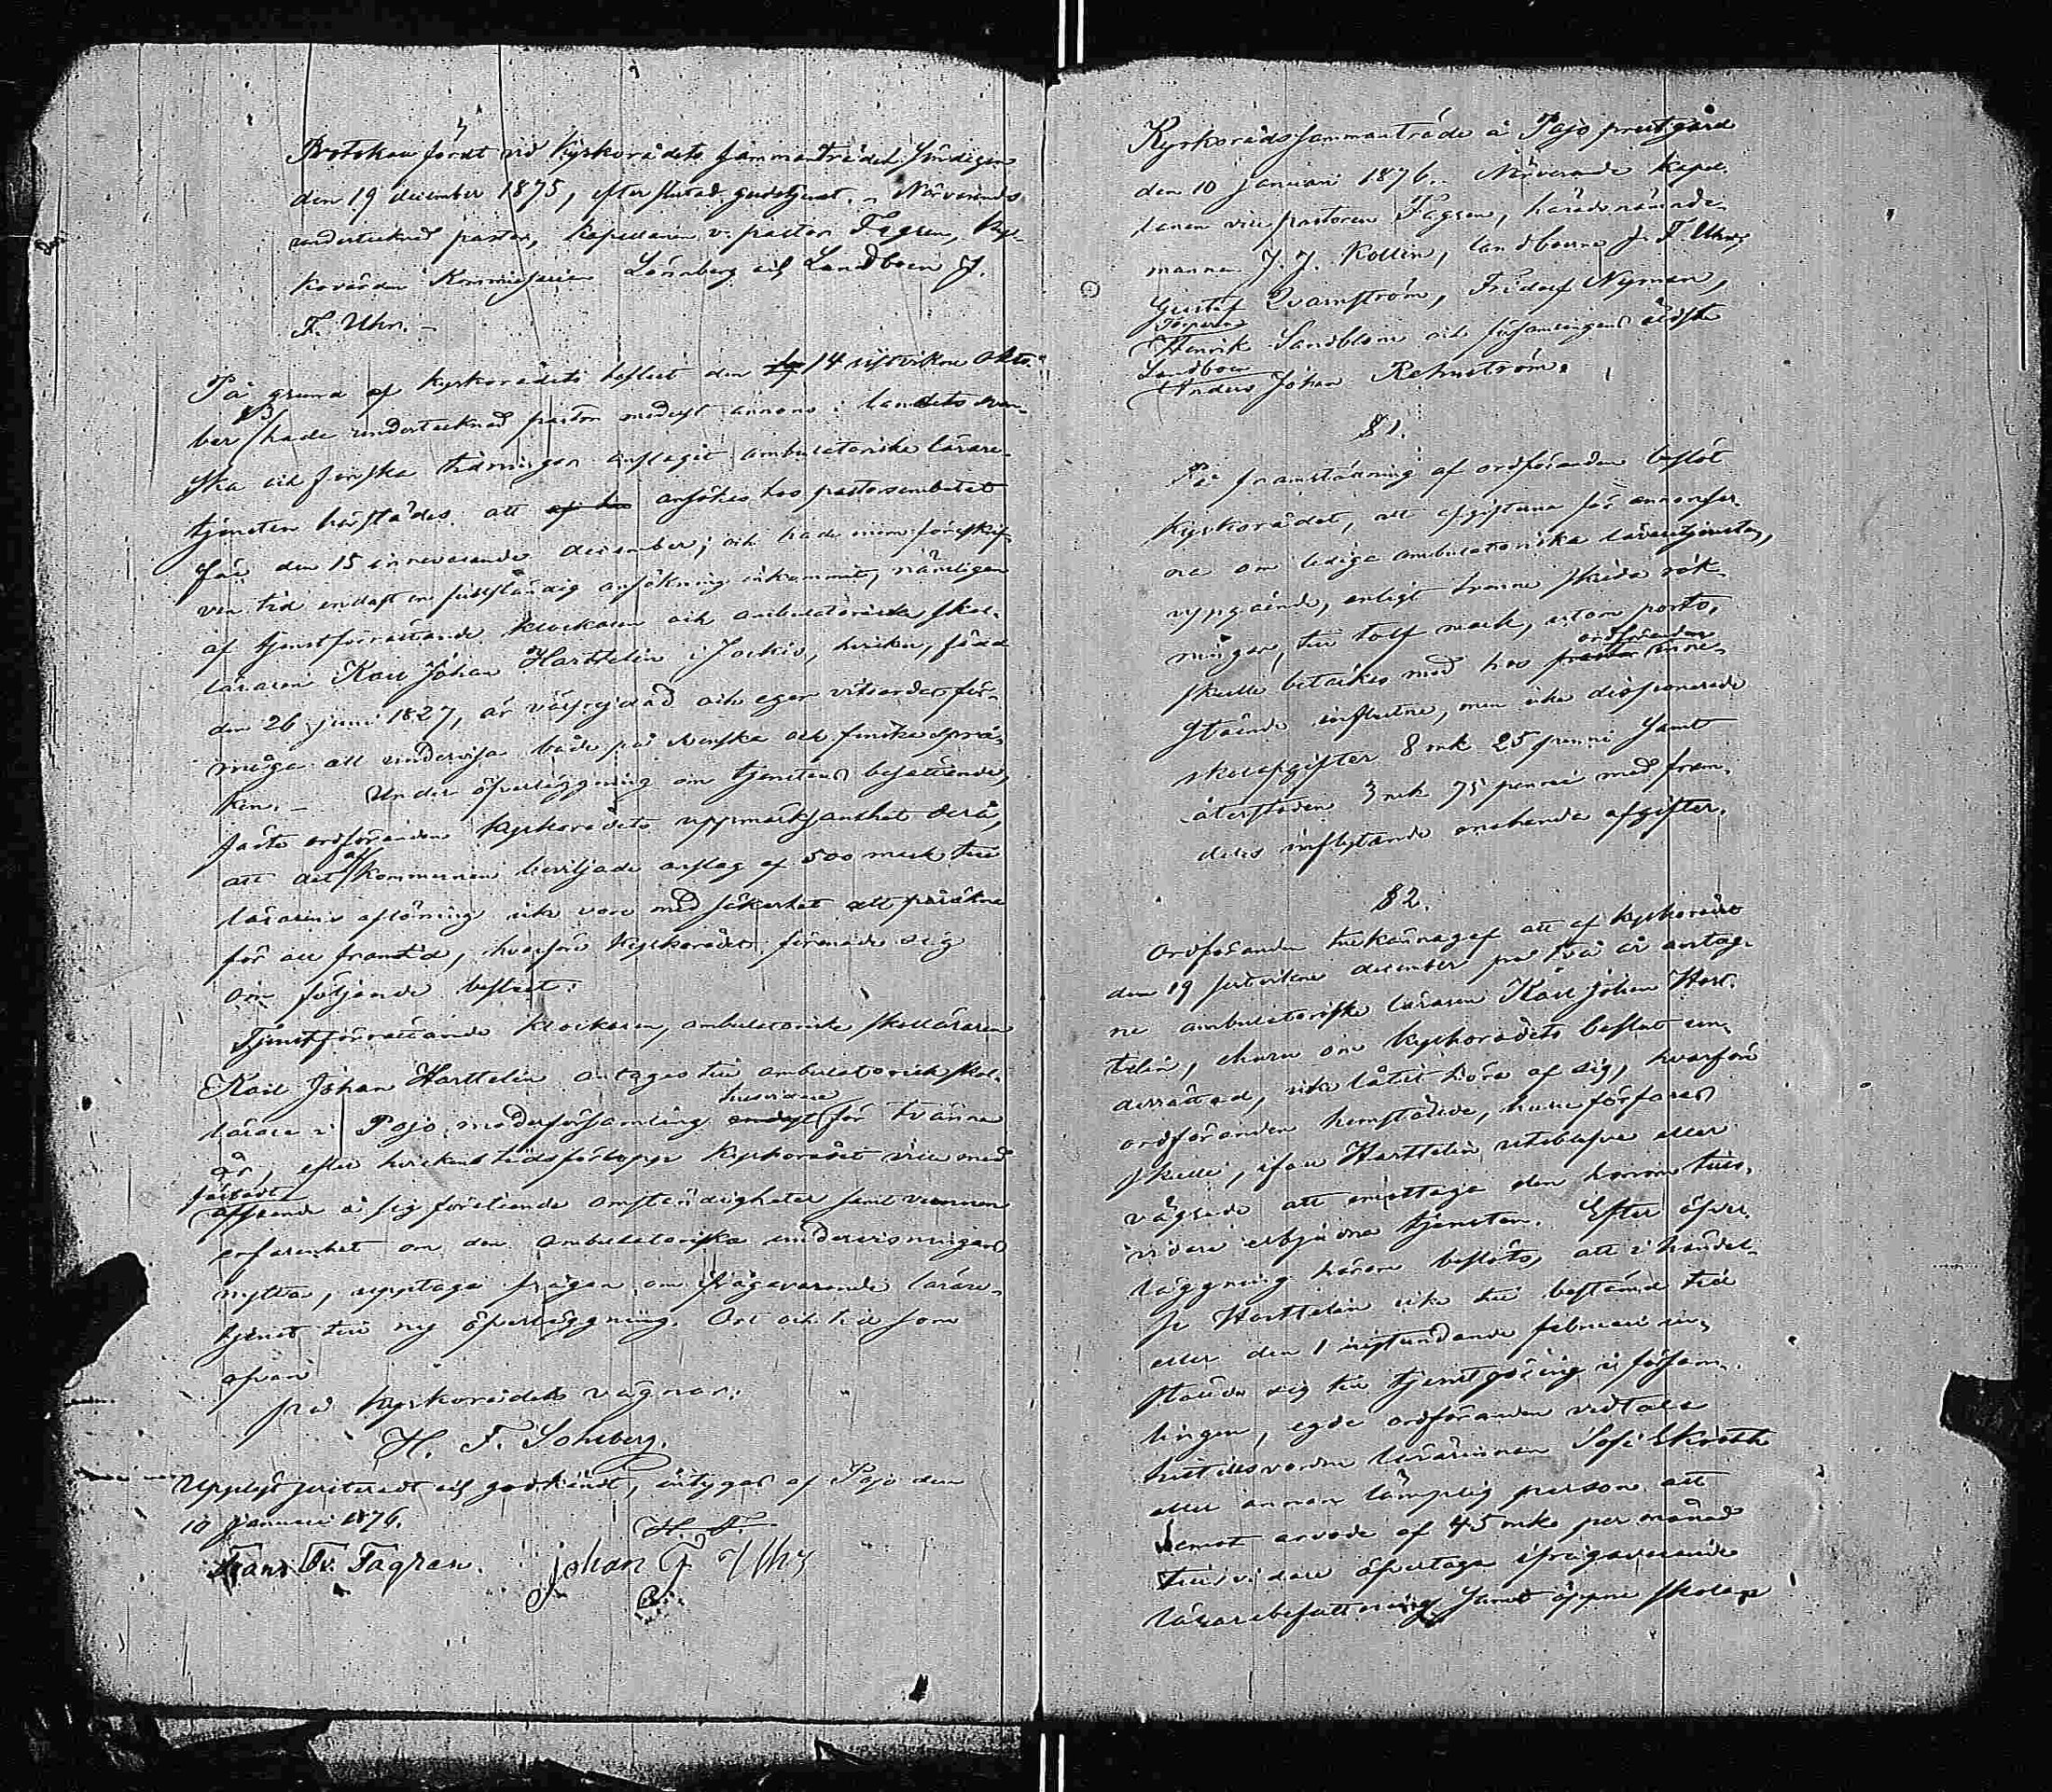 Protokoll fördt vid Kyrkorådets sammanträdet Söndagen
den 19 december 1875, efter slutad gudstjenst. – Närvarande
undertecknad pastor, kapellanen v. pastor Fagren, Kyr-
kovärden Kommissarien Lönnberg och Landboen J.
F. Uhr. –
På grund af kyrkorådets beslut den 14 sistvikne Okto-
ber § 3 hade undertecknad pastor medelst annons i landets sven-
ska och finska tidningar anslagit ambulatoriska lärare-
tjensten härstädes att ansökas hos pastorsembetet
före den 15 innevarande december; och hade inom föreskrif-
ven tid endast en fullständig ansökning inkommit, nämligen
af tjenstförrättande klockaren och ambulatoriske skol-
läraren Karl Johan Harttelin i Jockis, hvilken, född
den 26 juni 1827, är väl frejdad och eger vitsordad för-
måga att undervisa både på svenska och finska språ-
ken. – Under öfverläggning om tjenstens besättande,
fäste ordföranden Kyrkorådets uppmärksamhet derå,
att det af kommunen beviljade anslag af 500 mark till
lärarens aflöning icke vore med säkerhet att påräkna
för all framtid, hvarföre Kyrkorådet förenade sig
om följande beslut:
Tjenstförrättande klockaren, ambulatoriske skolläraren
Karl Johan Harttelin antages till ambulatorisk skol-
lärare i Pojo moderförsamling tillsvidare för tvänne
år, efter hvilkens tidsförlopp Kyrkorådet vill med
fästadt afseende å sig företeende omständigheter samt vunnen
erfarenhet om den ambulatoriska undervisningens
nytta, upptaga frågan om ifrågavarande lärare-
tjenst till ny öfverläggning. Ort och tid som
ofvan
på Kyrkorådets vägnar:
H. F. Sohlberg.
Uppläst justeradt och godkändt, intygas af Pojo den
10 Januari 1876.
H. F.
Frans Fr. Fagren. Johan F Uhr
Kyrkorådssammanträde å Pojo prestgård
den 10 Januari 1876. Närvarande kapel-
lanen vice pastoren Fagren, häradsnämnde-
mannen J. J. Kollin, landboerne J. F. Uhr,
Gustaf Qvarnström, Fridolf Nyman,
Torparen
Henrik Sandblom och församlingens äldste
Landboen
Anders Johan Rehnström.
§ 1.
På framställning af ordföranden beslöt
Kyrkorådet, att afgifterna för annonser-
na om lediga ambulatoriska läraretjensten,
uppgående, enligt tvenne skilda räk-
ningar, till tolf mark, utom porto,
skulle betäckas med hos ordföranden inne-
stående influtne, men icke disponerade
skolafgifter 8 mk 25 penni samt
återstoden 3 mk 75 penni med fram-
deles inflytande enahanda afgifter.
§ 2.
Ordföranden tillkännagaf att af kyrkorådet
den 19 sistvikne december på två år antag-
ne ambulatoriske läraren Karl Johan Hart-
telin, ehuru om kyrkorådets beslut un-
derrättad, icke låtit höra af sig, hvarföre
ordföranden hemställde, huru förfaras
skulle, ifall Harttelin uteblefve eller
vägrade att emottaga den honom tills-
vidare erbjudna tjensten. Efter öfver-
läggning härom beslöts, att i händel-
se Harttelin icke till bestämd tid
eller den 1 instundande februari in-
ställde sig till tjenstgöring i försam-
lingen, egde ordföranden vidtala
hittillsvarande lärarinnan Sofi Ekroth
eller annan lämplig person att
emot arvode af 45 mk per månad
tillsvidare öfvertaga ifrågavarande
lärarebefattning samt öppna skola